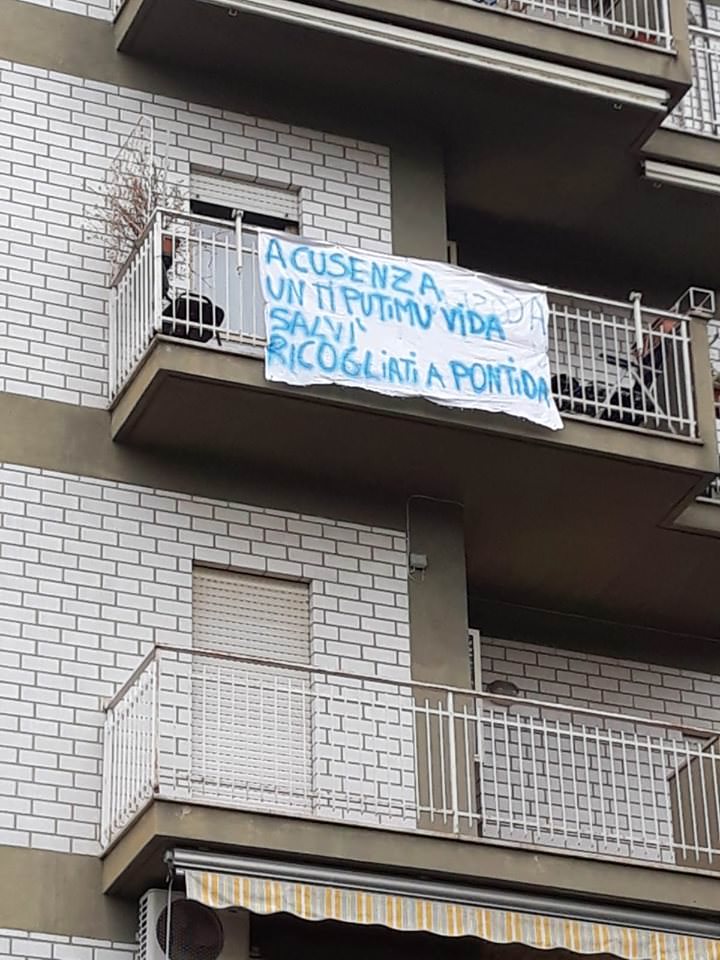 A CUSENZA
UN TI PUTIMU VIDA
SALVI'
RICOGLIATI A PONTIDA